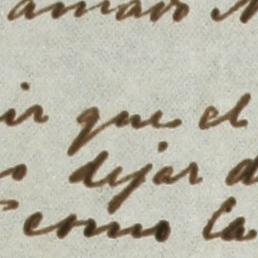 amado
ir que el
o dejar d
como la